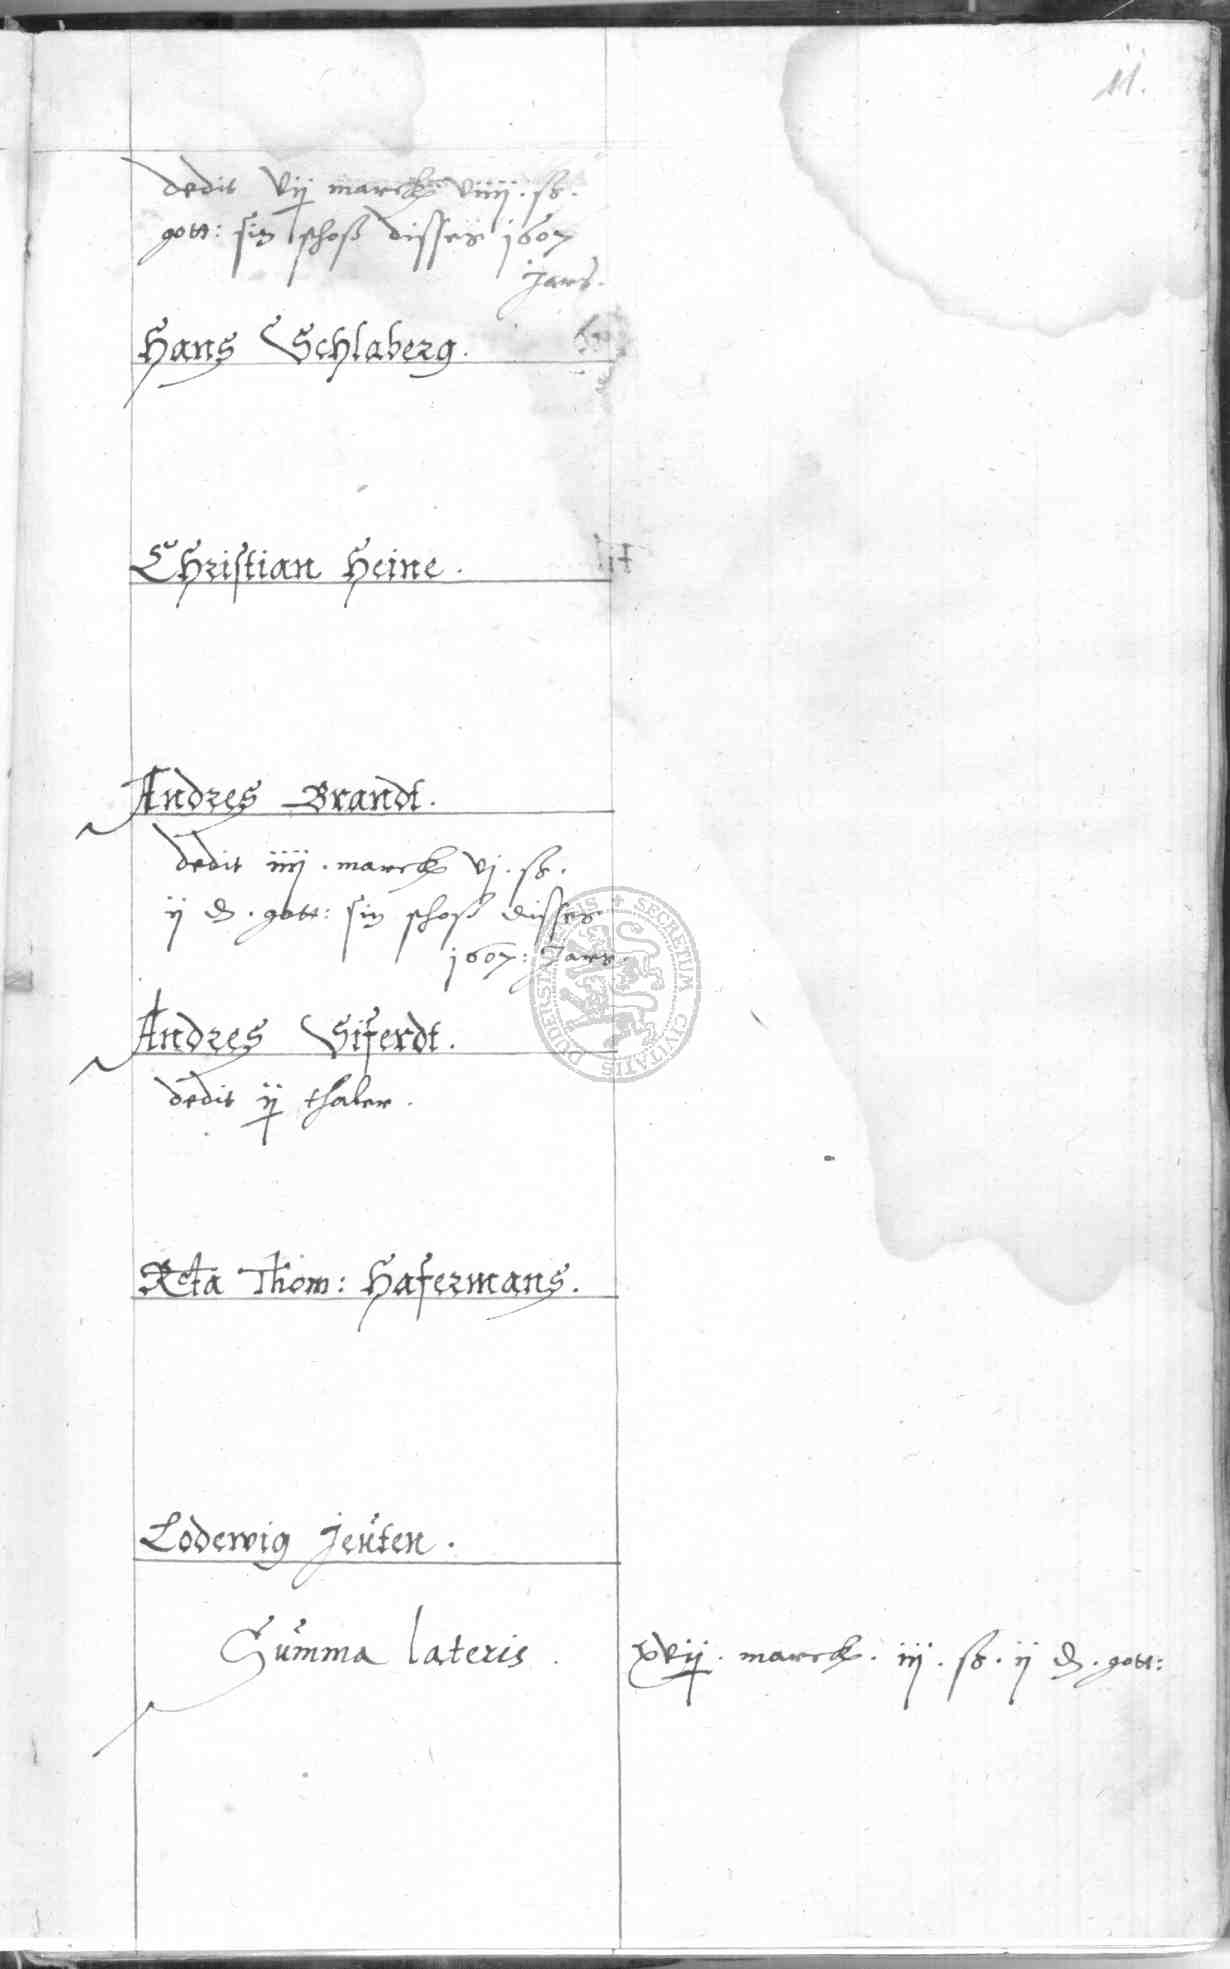 11.
dedit vij marck viiij. ß.
gott: sin schoß disses 1607
Jars.
Hans Schlaberg.
Christian Heine.
Andres Brandt.
dedit iiij. marck vj. ß.
ij d. gott: sin schoß disses
1607: Jars.
Andres Siferdt.
dedit ij thaler.
Rcta Thom: Hafermans.
Lodewig Jeuten.
Summa lateris. xvij. marck. iij. ß. ij d. gott:
SECRETUM CIVITATIS DUDERSTADENSIS